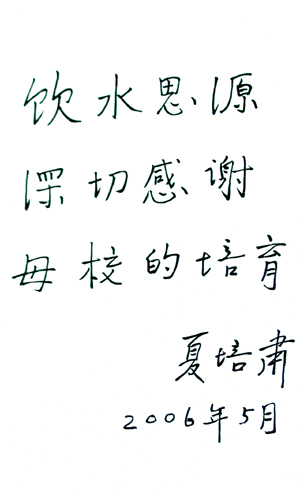 饮水思源
深切感谢
母校的培育
夏培肃
2006年5月